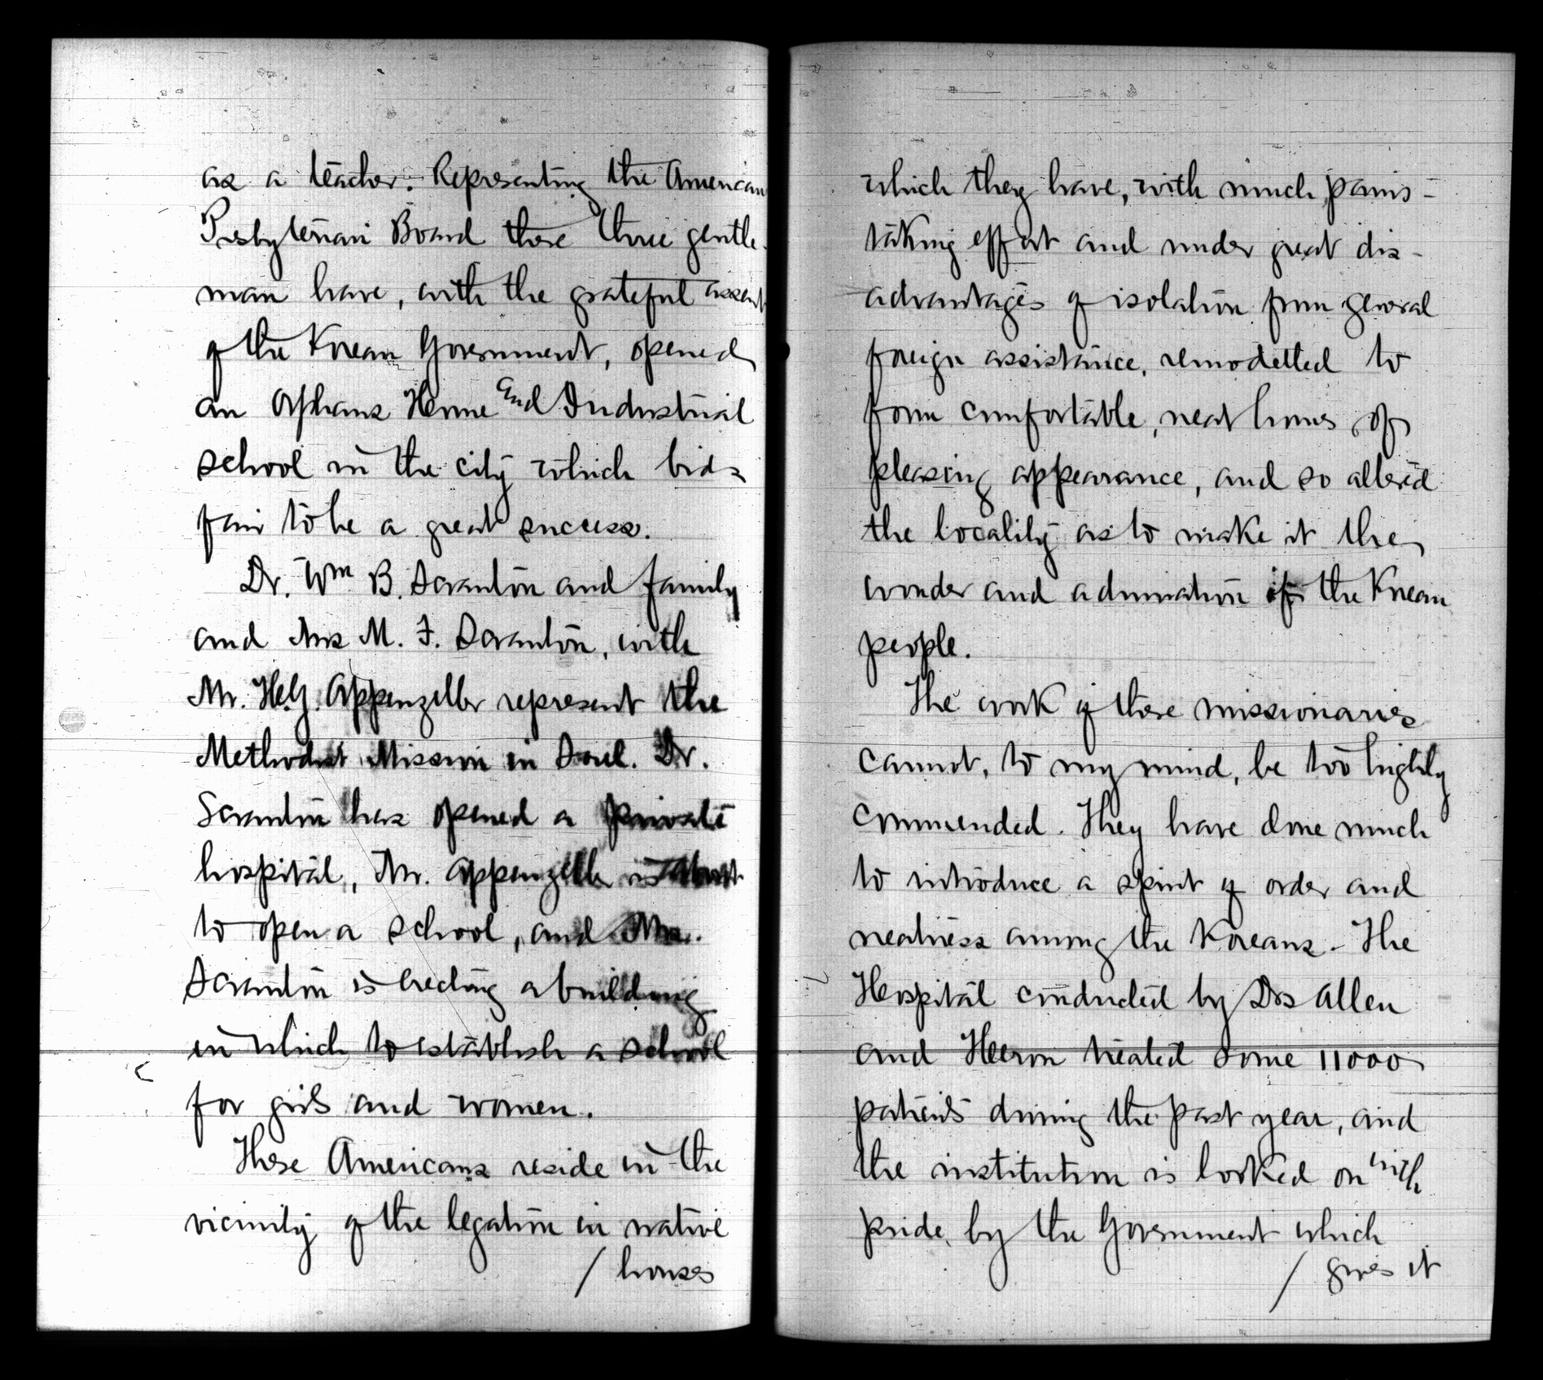 as a teacher. Representing the American
Presbyterian Board these three gentle-
men have, with the grateful assent
of the Korean Government, opened
an Orphans Home and Industrial
school in the city which bids
fair to be a great success.
Dr. Wm B. Scranton and family
and Mrs M. F. Scranton, with
Mr. H.G. Appenzeller represent the
Methodist Mission in Soul. Dr.
Scranton has opened a private
hospital, Mr. Appenzeller is about
to open a school, and Mrs.
Scranton is erecting a building
in which to establish a school
for girls and women.
These Americans reside in the
vicinity of the legation in native
/ houses
which they have, with much pains-
taking effort and under great dis-
advantages of isolation from general
foreign assistance, remodelled to
form comfortable, neat homes of
pleasing appearance, and so altered
the locality as to make it the
wonder and admiration of the Korean
people.
The work of these missionaries
cannot, to my mind, be too highly
commended. They have done much
to introduce a spirit of order and
neatness among the Koreans. The
Hospital conducted by Drs Allen
and Heron treated some 11000
patients during the past year, and
the institution is looked on with
pride, by the Government which
/ gives it